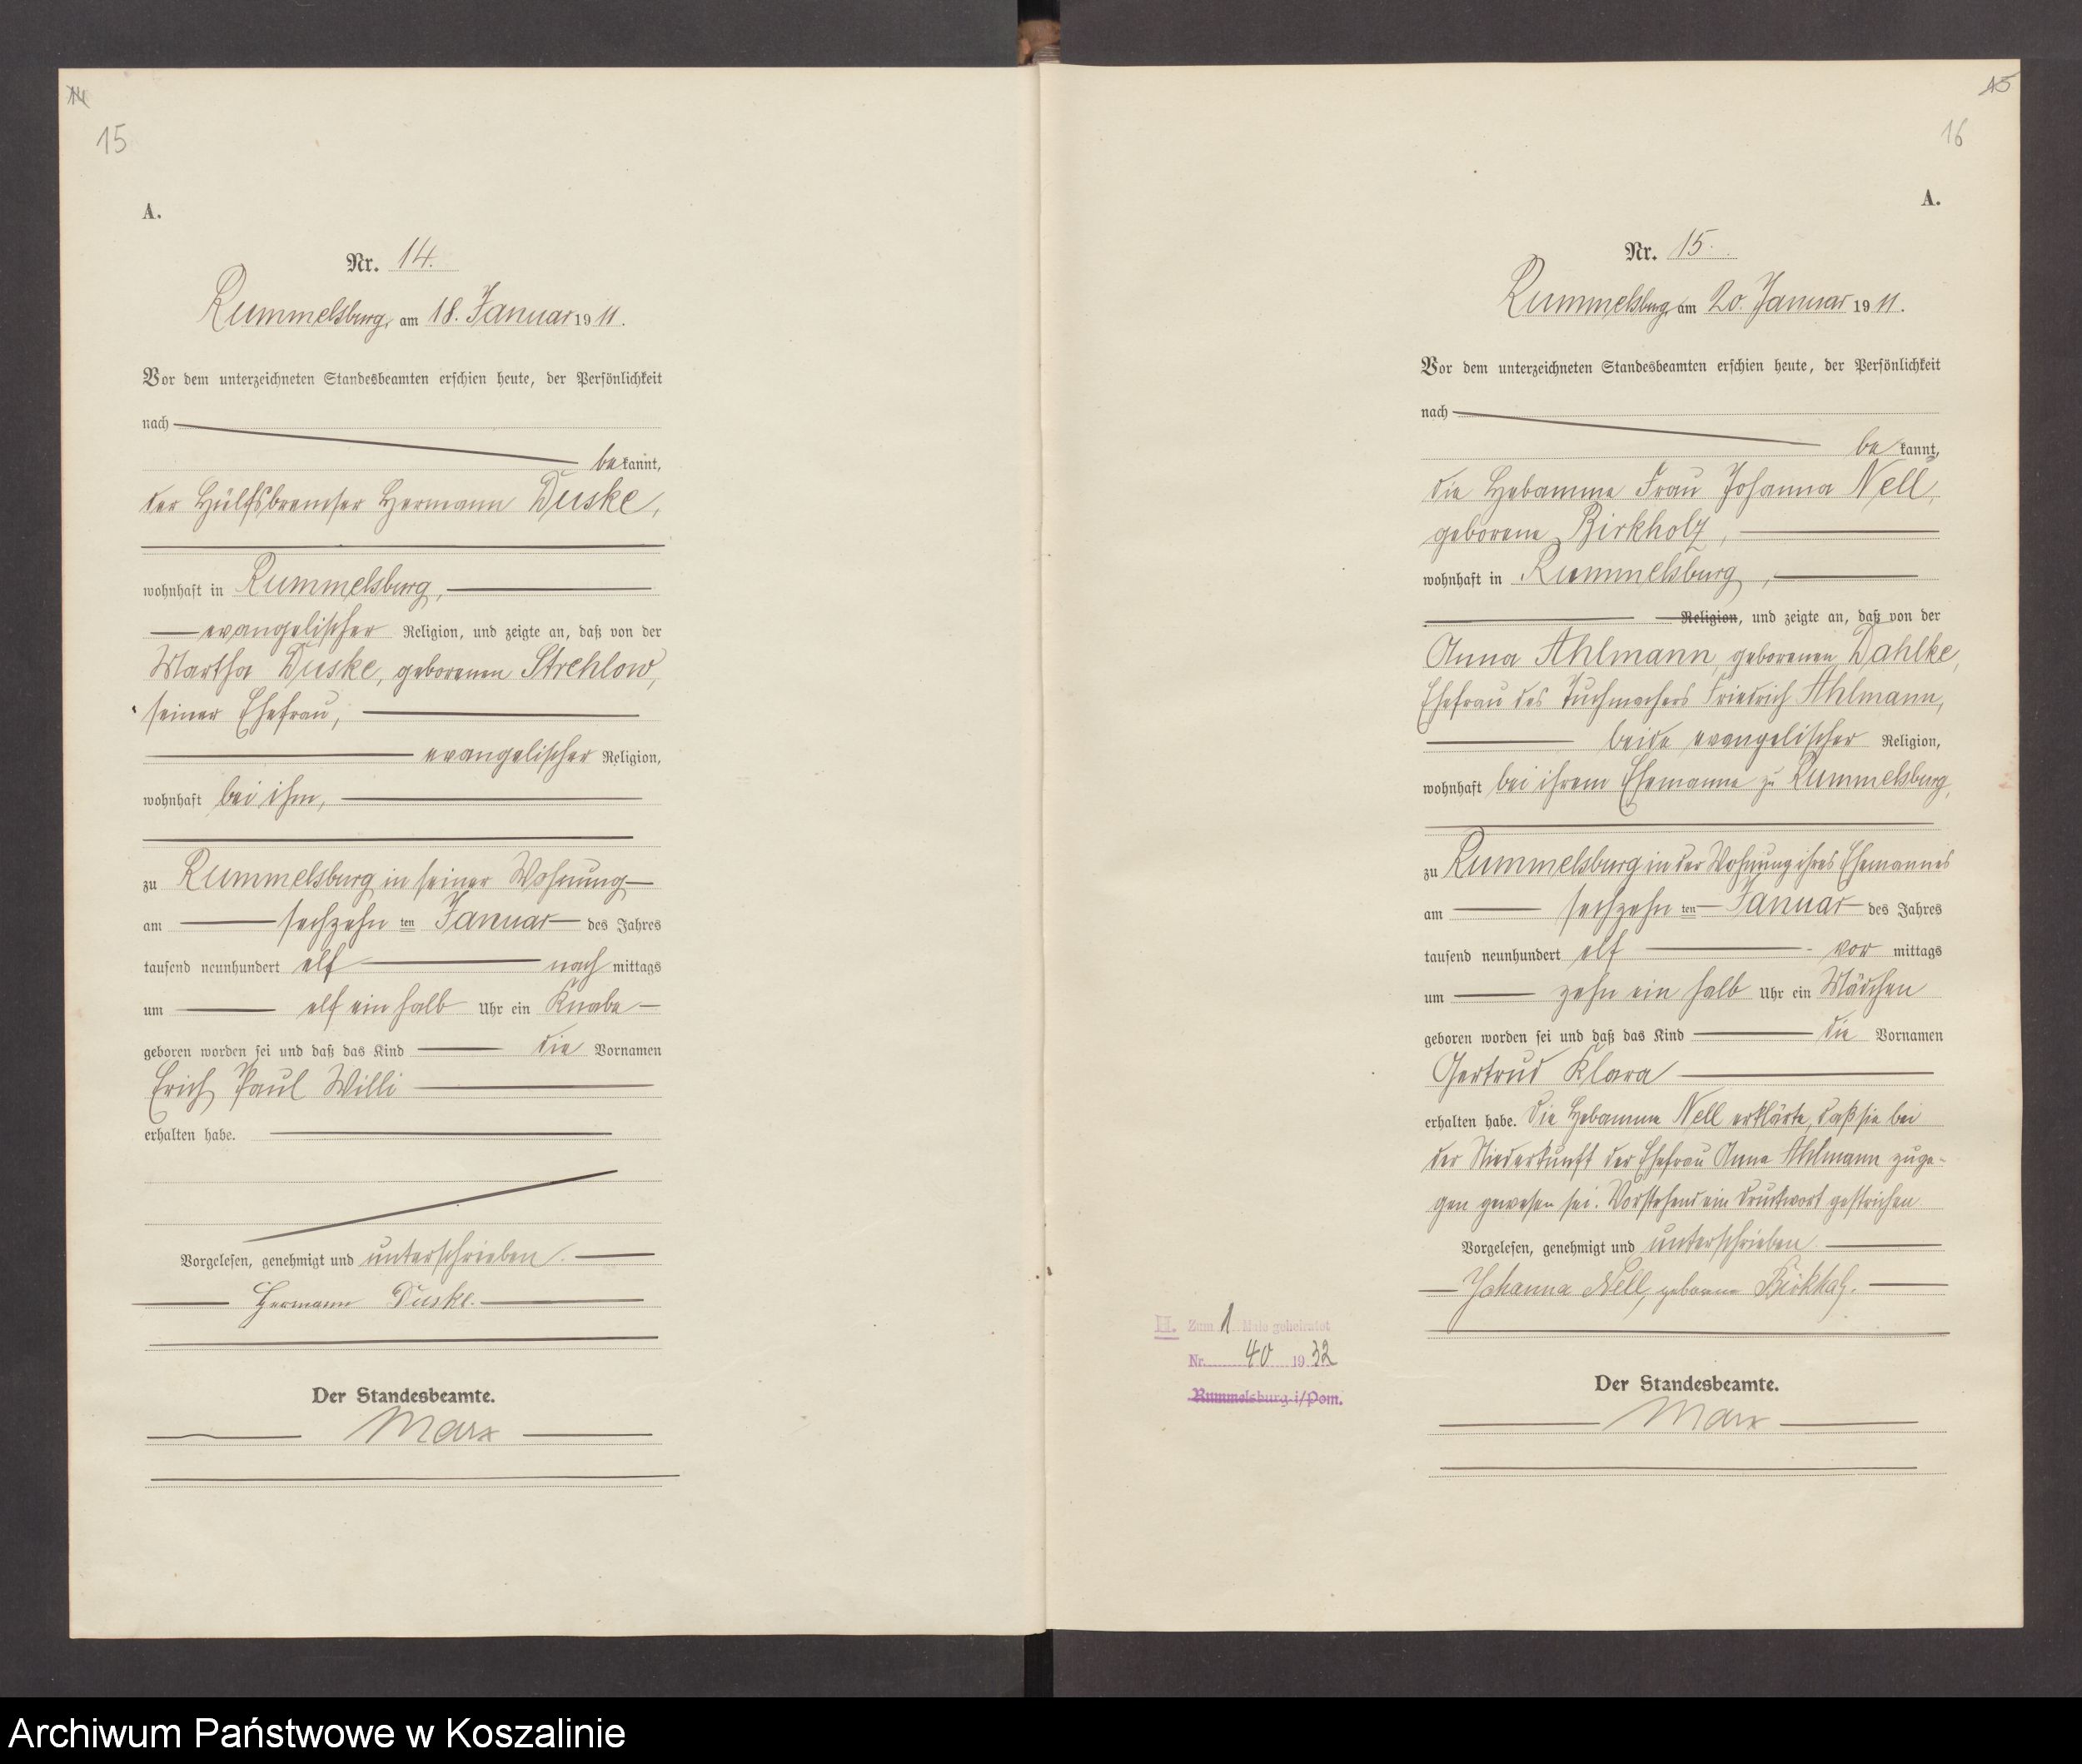 14
15
A.
Nr. 14.
Rummelsburg, am 18. Januar 1911.
Vor dem unterzeichneten Standesbeamten erschien heute, der Persönlichkeit
nach
bekannt,
der Hülfsbremser Hermann Duske,
wohnhaft in Rummelsburg,
evangelischer Religion, und zeigte an, daß von der
Martha Duske, geborenen Strehlow,
seiner Ehefrau,
evangelischer Religion,
wohnhaft bei ihm,
zu Rummelsburg in seiner Wohnung
am sechzehn ten Januar des Jahres
tausend neunhundert elf nach mittags
um elf ein halb Uhr ein Knabe
geboren worden sei und daß das Kind die Vornamen
Erich Paul Willi
erhalten habe.
Vorgelesen, genehmigt und unterschrieben.
Hermann Duske.
Der Standesbeamte.
Marx
15
16
A.
Nr. 15.
Rummelsburg, am 20. Januar 1911.
Vor dem unterzeichneten Standesbeamten erschien heute, der Persönlichkeit
nach
bekannt,
die Hebamme Frau Johanna Nell,
geborene Birkholz,
wohnhaft in Rummelsburg,
Religion, und zeigte an, daß von der
Anna Ahlmann, geborenen Dahlke,
Ehefrau des Tuchmachers Friedrich Ahlmann,
beide evangelischer Religion,
wohnhaft bei ihrem Ehemanne zu Rummelsburg,
zu Rummelsburg in der Wohnung ihres Ehemannes
am sechzehn ten Januar des Jahres
tausend neunhundert elf vor mittags
um zehn ein halb Uhr ein Mädchen
geboren worden sei und daß das Kind die Vornamen
Gertrud Klara
erhalten habe. Die Hebamme Nell erklärte, daß sie bei
der Niederkunft der Ehefrau Anna Ahlmann zuge-
gen gewesen sei. Vorstehend ein Druckwort gestrichen.
Vorgelesen, genehmigt und unterschrieben.
Johanna Nell, geborene Birkholz.
H. Zum 1 Male geheiratet
Nr. 40 1932
Rummelsburg i/Pom.
Der Standesbeamte.
Marx
Archiwum Państwowe w Koszalinie